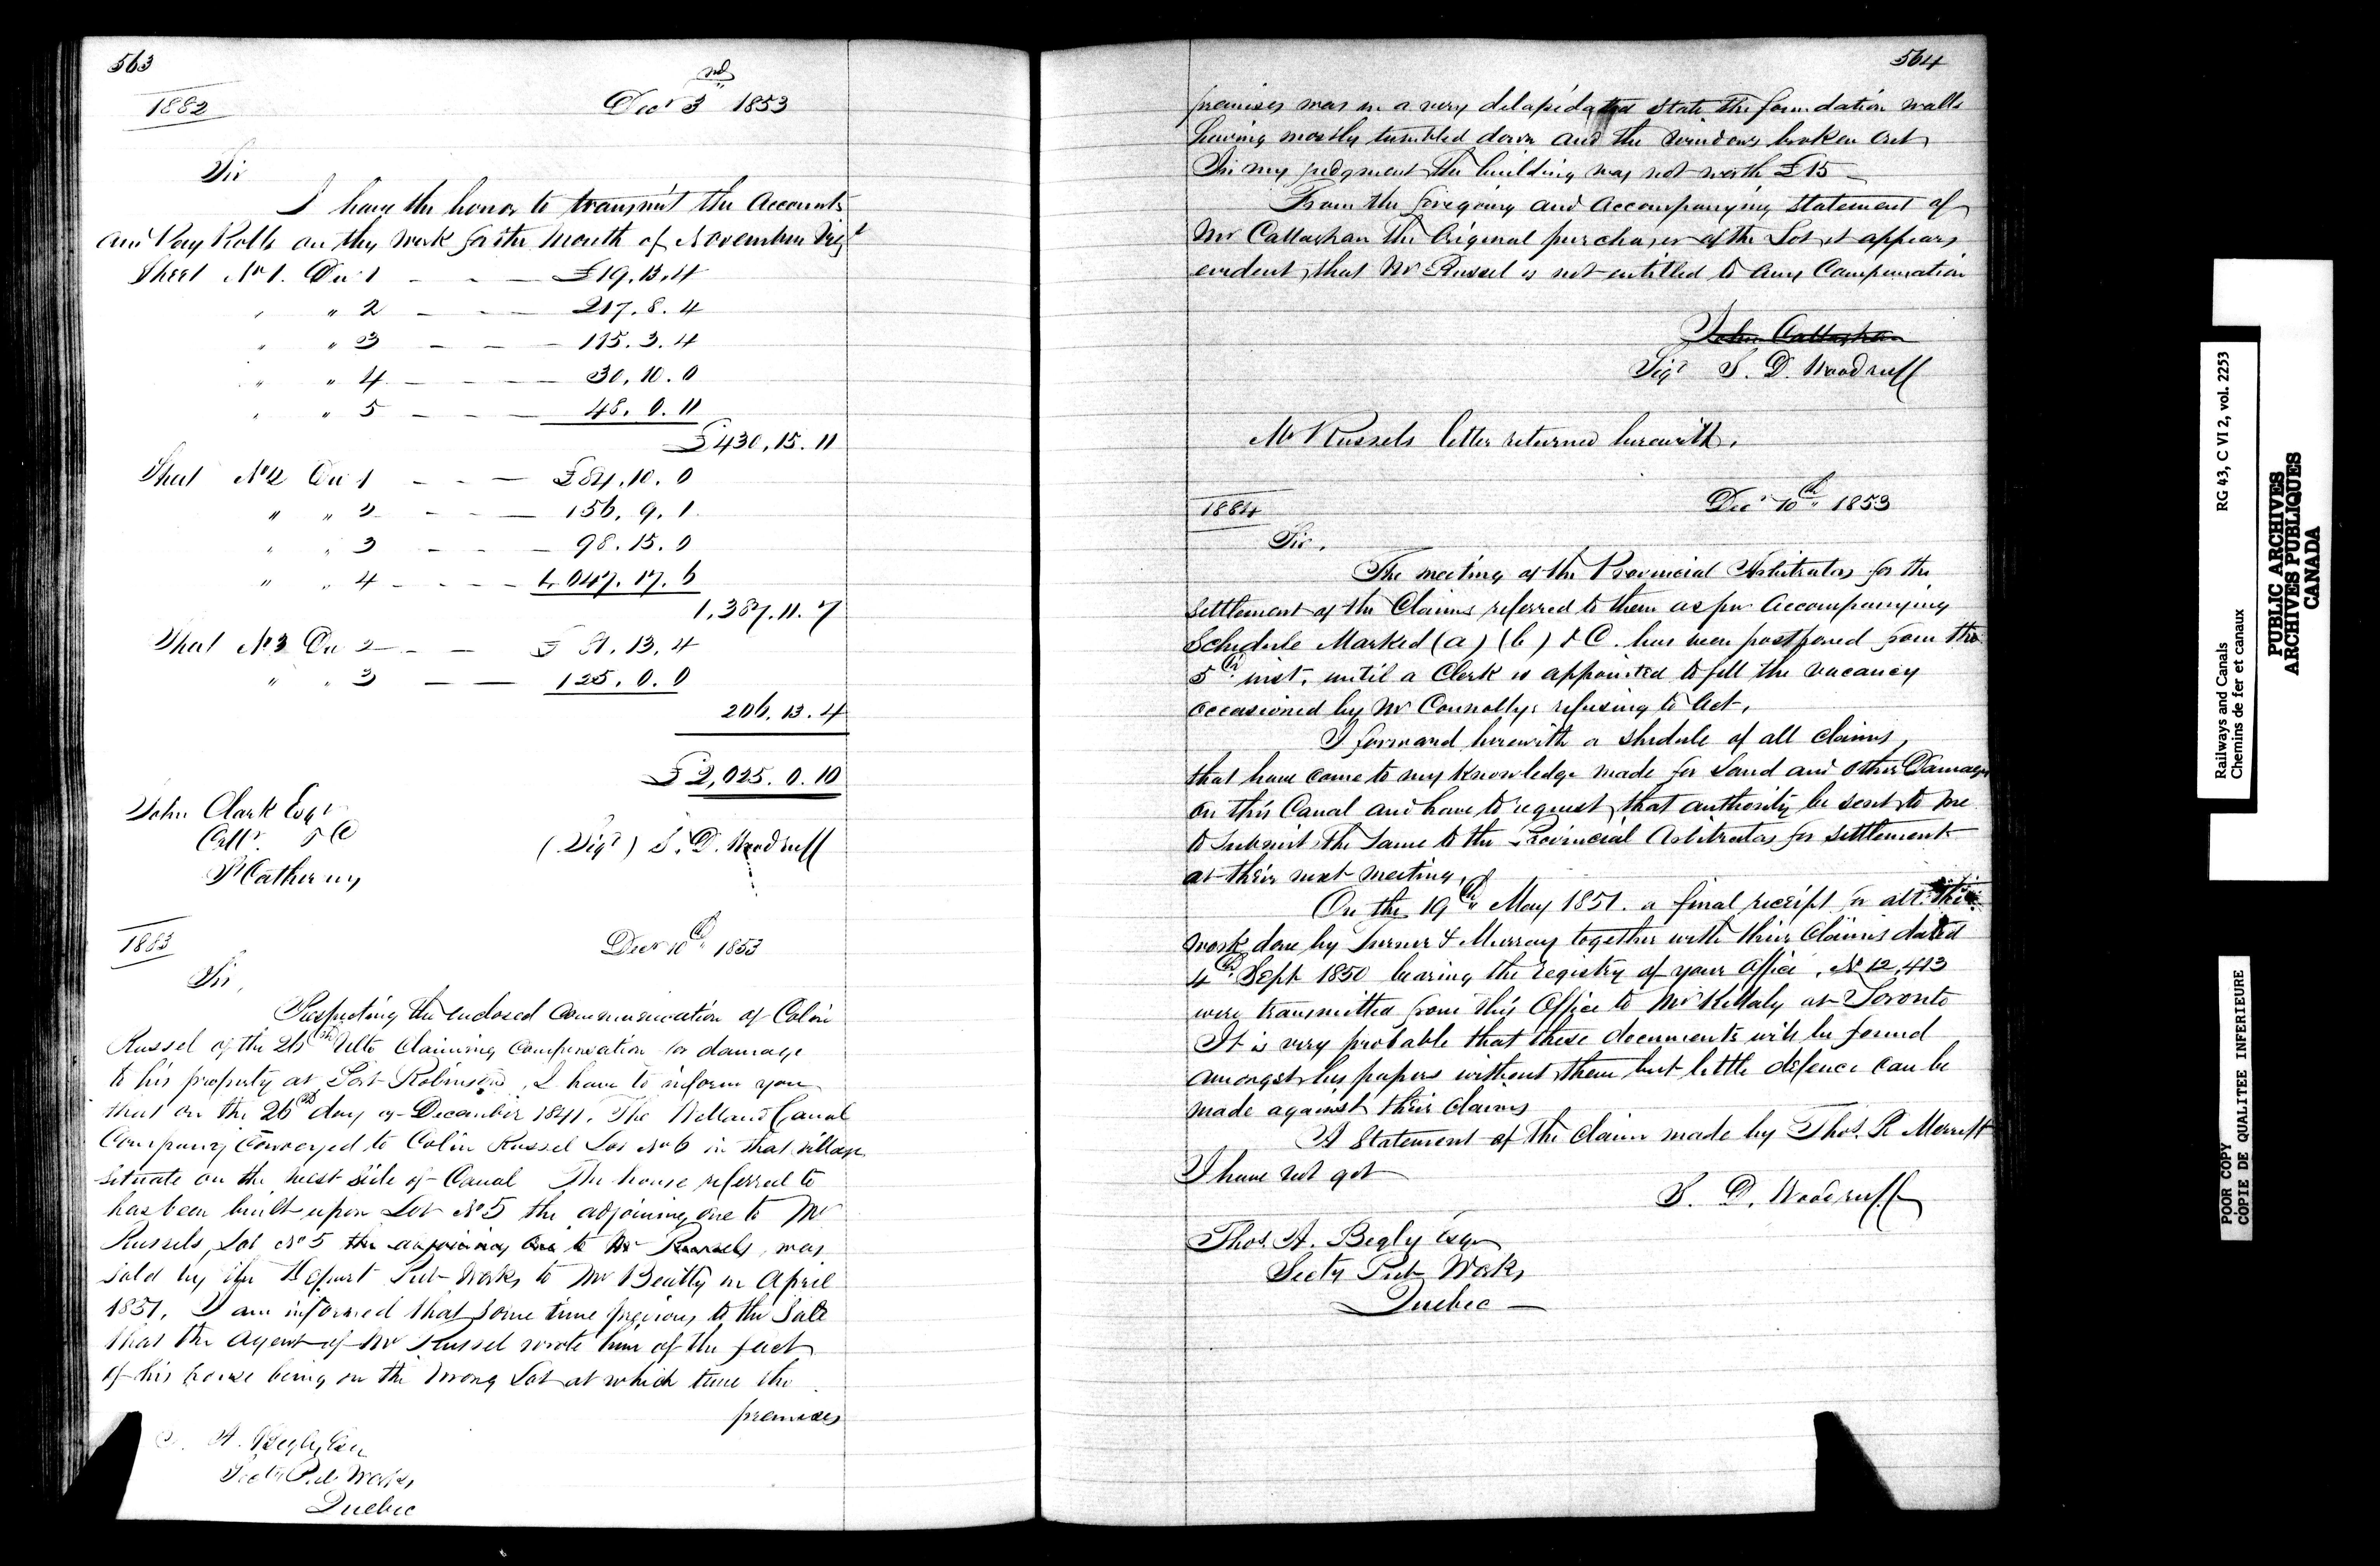 563
1882
Decr 3rd 1853
Sir
I have the honor to transmit the Accounts
and Pay Rolls on this Work for the Month of November Viz
Sheet No 1. Div 1 - - - £19.13.4
" " 2 - - - 217.8.4
" " 3 - - - 115.3.4
" " 4 - - - 30.10.0
" " 5 - - - 48.0.11
£430.15.11
Sheet No 2 Div 1 - - - £84.10.0
" " 2 - - - 156.9.1
" " 3 - - - 98.15.0
" " 4 - - - 1,047.17.6
1,387.11.7
Sheet No 3 Div 2 - - £81.13.4
" " 3 - - 125.0.0
206.13.4
£2,025.0.10
John Clark Esqr
Collr. T C
St Catherines
(Sigd) S. D. Woodruff
1883
Decr 10th 1853
Sir,
Respecting the enclosed communication of Colin
Russel of the 26th Ulto Claiming Compensation for damage
to his property at Port Robinson, I have to inform you
that on the 26th day of December 1841. The Welland Canal
Company Conveyed to Colin Russel Lot No 6 in that village
situate on the West side of Canal The house referred to
has been built upon Lot No 5 the adjoining one to Mr
Russels, Lot No 5 the adjoining one to Mr Russels, was
sold by the Depart Pub Works to Mr Beatty in April
1851. I am informed that some time previous to the Sale
that the Agent of Mr Russel wrote him of the fact
of his house being on the Wrong Lot at which time the
premises
A. Begly Esqr
Secty Pub Works,
Quebec
564
premises was in a very delapidated state the foundation walls
having mostly tumbled down and the windows broken out
In my judgment the building was not worth £15 -
From the foregoing and Accompanying statement of
Mr Callaghan the Original purchaser of the Lot it appears
evident, that Mr Russel is not entitled to any Compensation
John Callaghan
Sigd S. D. Woodruff
Mr Russels letter returned herewith.
1884
Decr 10th 1853
Sir,
The meeting of the Provincial Arbitrators for the
settlement of the Claims referred to them as per Accompanying
Schedule Marked (a) (b) & C. has been postponed from the
5th inst. until a Clerk is appointed to fill the vacancy
occasioned by Mr Connollys refusing to Act.
I forward herewith a shedule of all claims
that have come to my knowledge made for Land and other Damages
on this Canal and have to request, that authority be sent to me
to submit the same to the Provincial Arbitrators for settlement
at their next meeting,
On the 19th May 1851. a final receipt for all the
work done by Turner & Murray together with their Claims dated
4th Sept 1850 bearing the registry of your Office, No 12,413
were transmitted from this Office to Mr Killaly at Toronto
It is very probable that these documents will be found
amongst his papers without them but little defence can be
made against their claims
A Statement of the claim made by Thos. R Merritt
I have not got
S. D. Woodruff
Thos. A. Begly Esqr
Secty Pub Works,
Quebec -
Railways and Canals
Chemins de fer et canaux
RG 43, C VI 2, vol. 2253
PUBLIC ARCHIVES
ARCHIVES PUBLIQUES
CANADA
POOR COPY
COPIE DE QUALITEE INFERIEURE